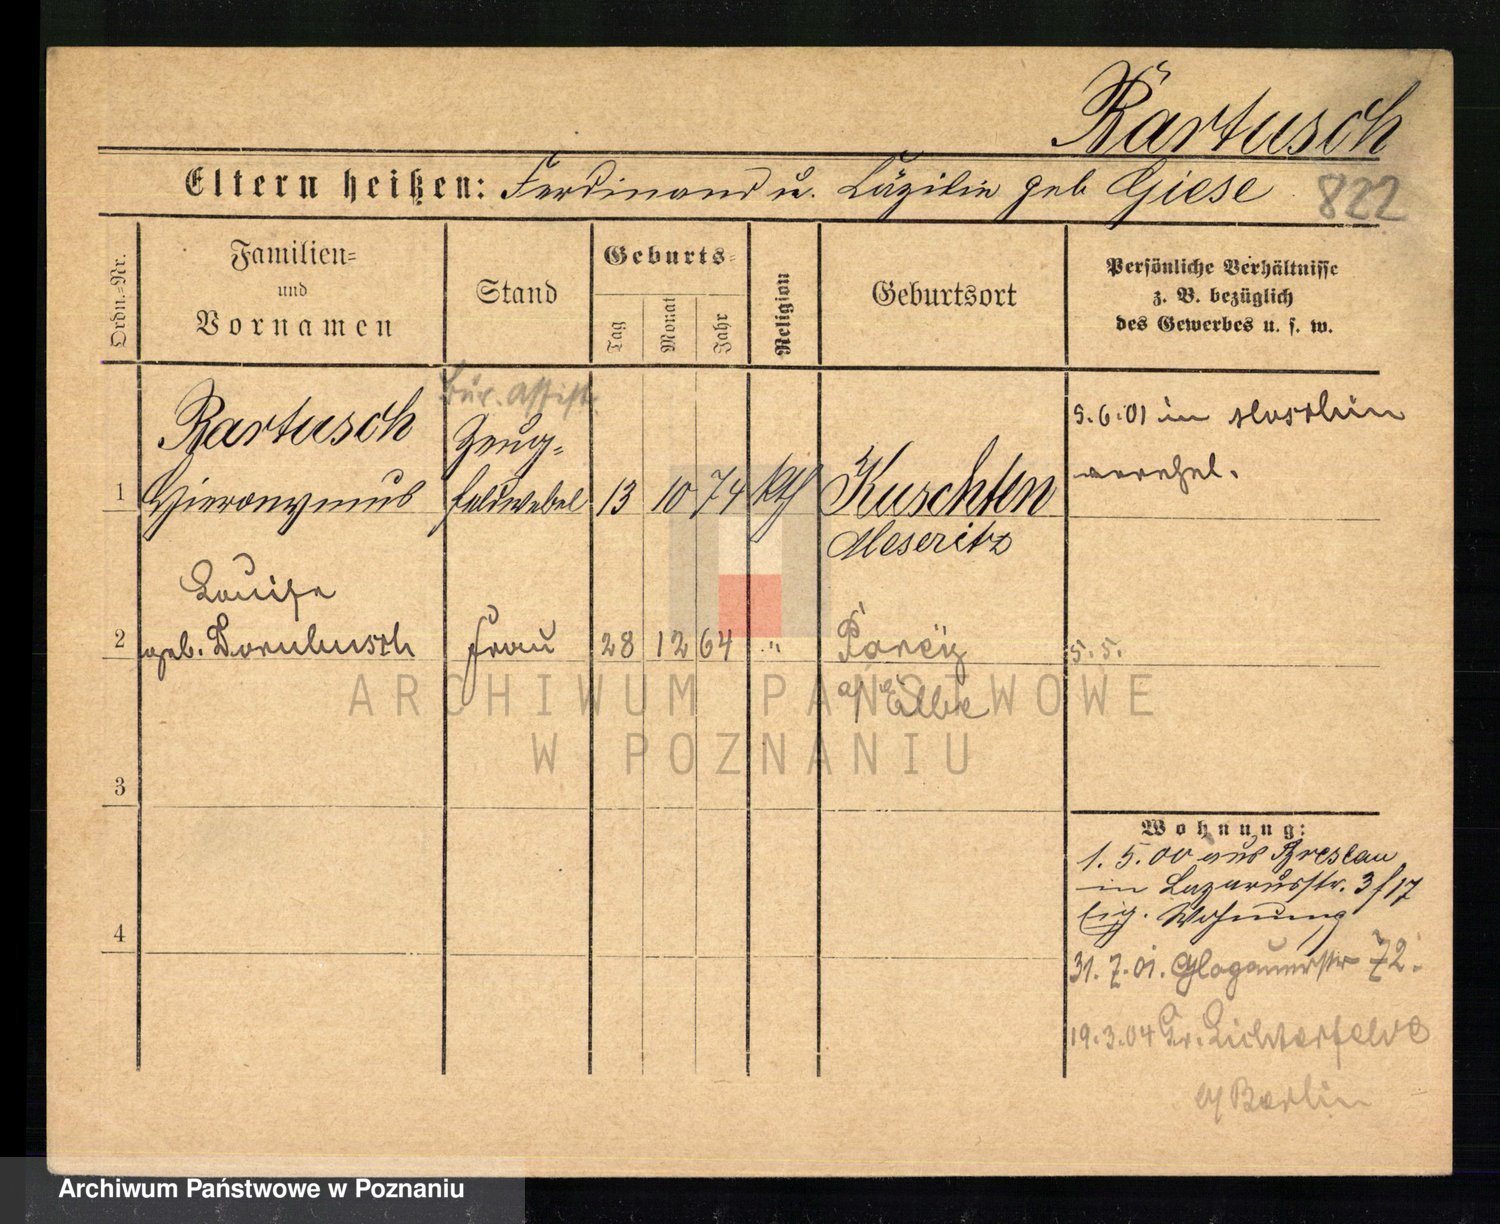 Bartusch
Eltern heißen: Ferdinand u. Cäzilie geb Giese
822
Ordn.-Nr.
Familien-
und
Vornamen
Stand
Geburts-
Tag
Monat
Jahr
Religion
Geburtsort
Persönliche Verhältnisse
z. B. bezüglich
des Gewerbes u. s. w.
Bür. Assist.
Bartusch
Zeug-
1 Hieronymus feldwebel 13 10 74 kth Kuschten
Meseritz
5.6.01 in
verehel.
Louise
2 geb. Dornbusch Frau 28 12 64 " Parey
a/ Elbe
5.5.
3
4
Wohnung:
1. 5. 00 aus Breslau
in Lazarusstr. 3/17
Eig. Wohnung
31. 7. 01. Glogauerstr 72.
19.3.04 Gr. Lichterfelde
b/ Berlin
ARCHIWUM PAŃSTWOWE
W POZNANIU
Archiwum Państwowe w Poznaniu